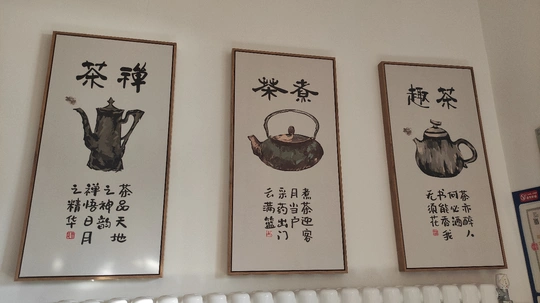 禅茶
茶品天地
之神韵
禅悟日月
之精华
煮茶
煮茶迎客
月当户
采药出门
云满篮
茶趣
茶亦醉人
何必酒
书能香我
无须花